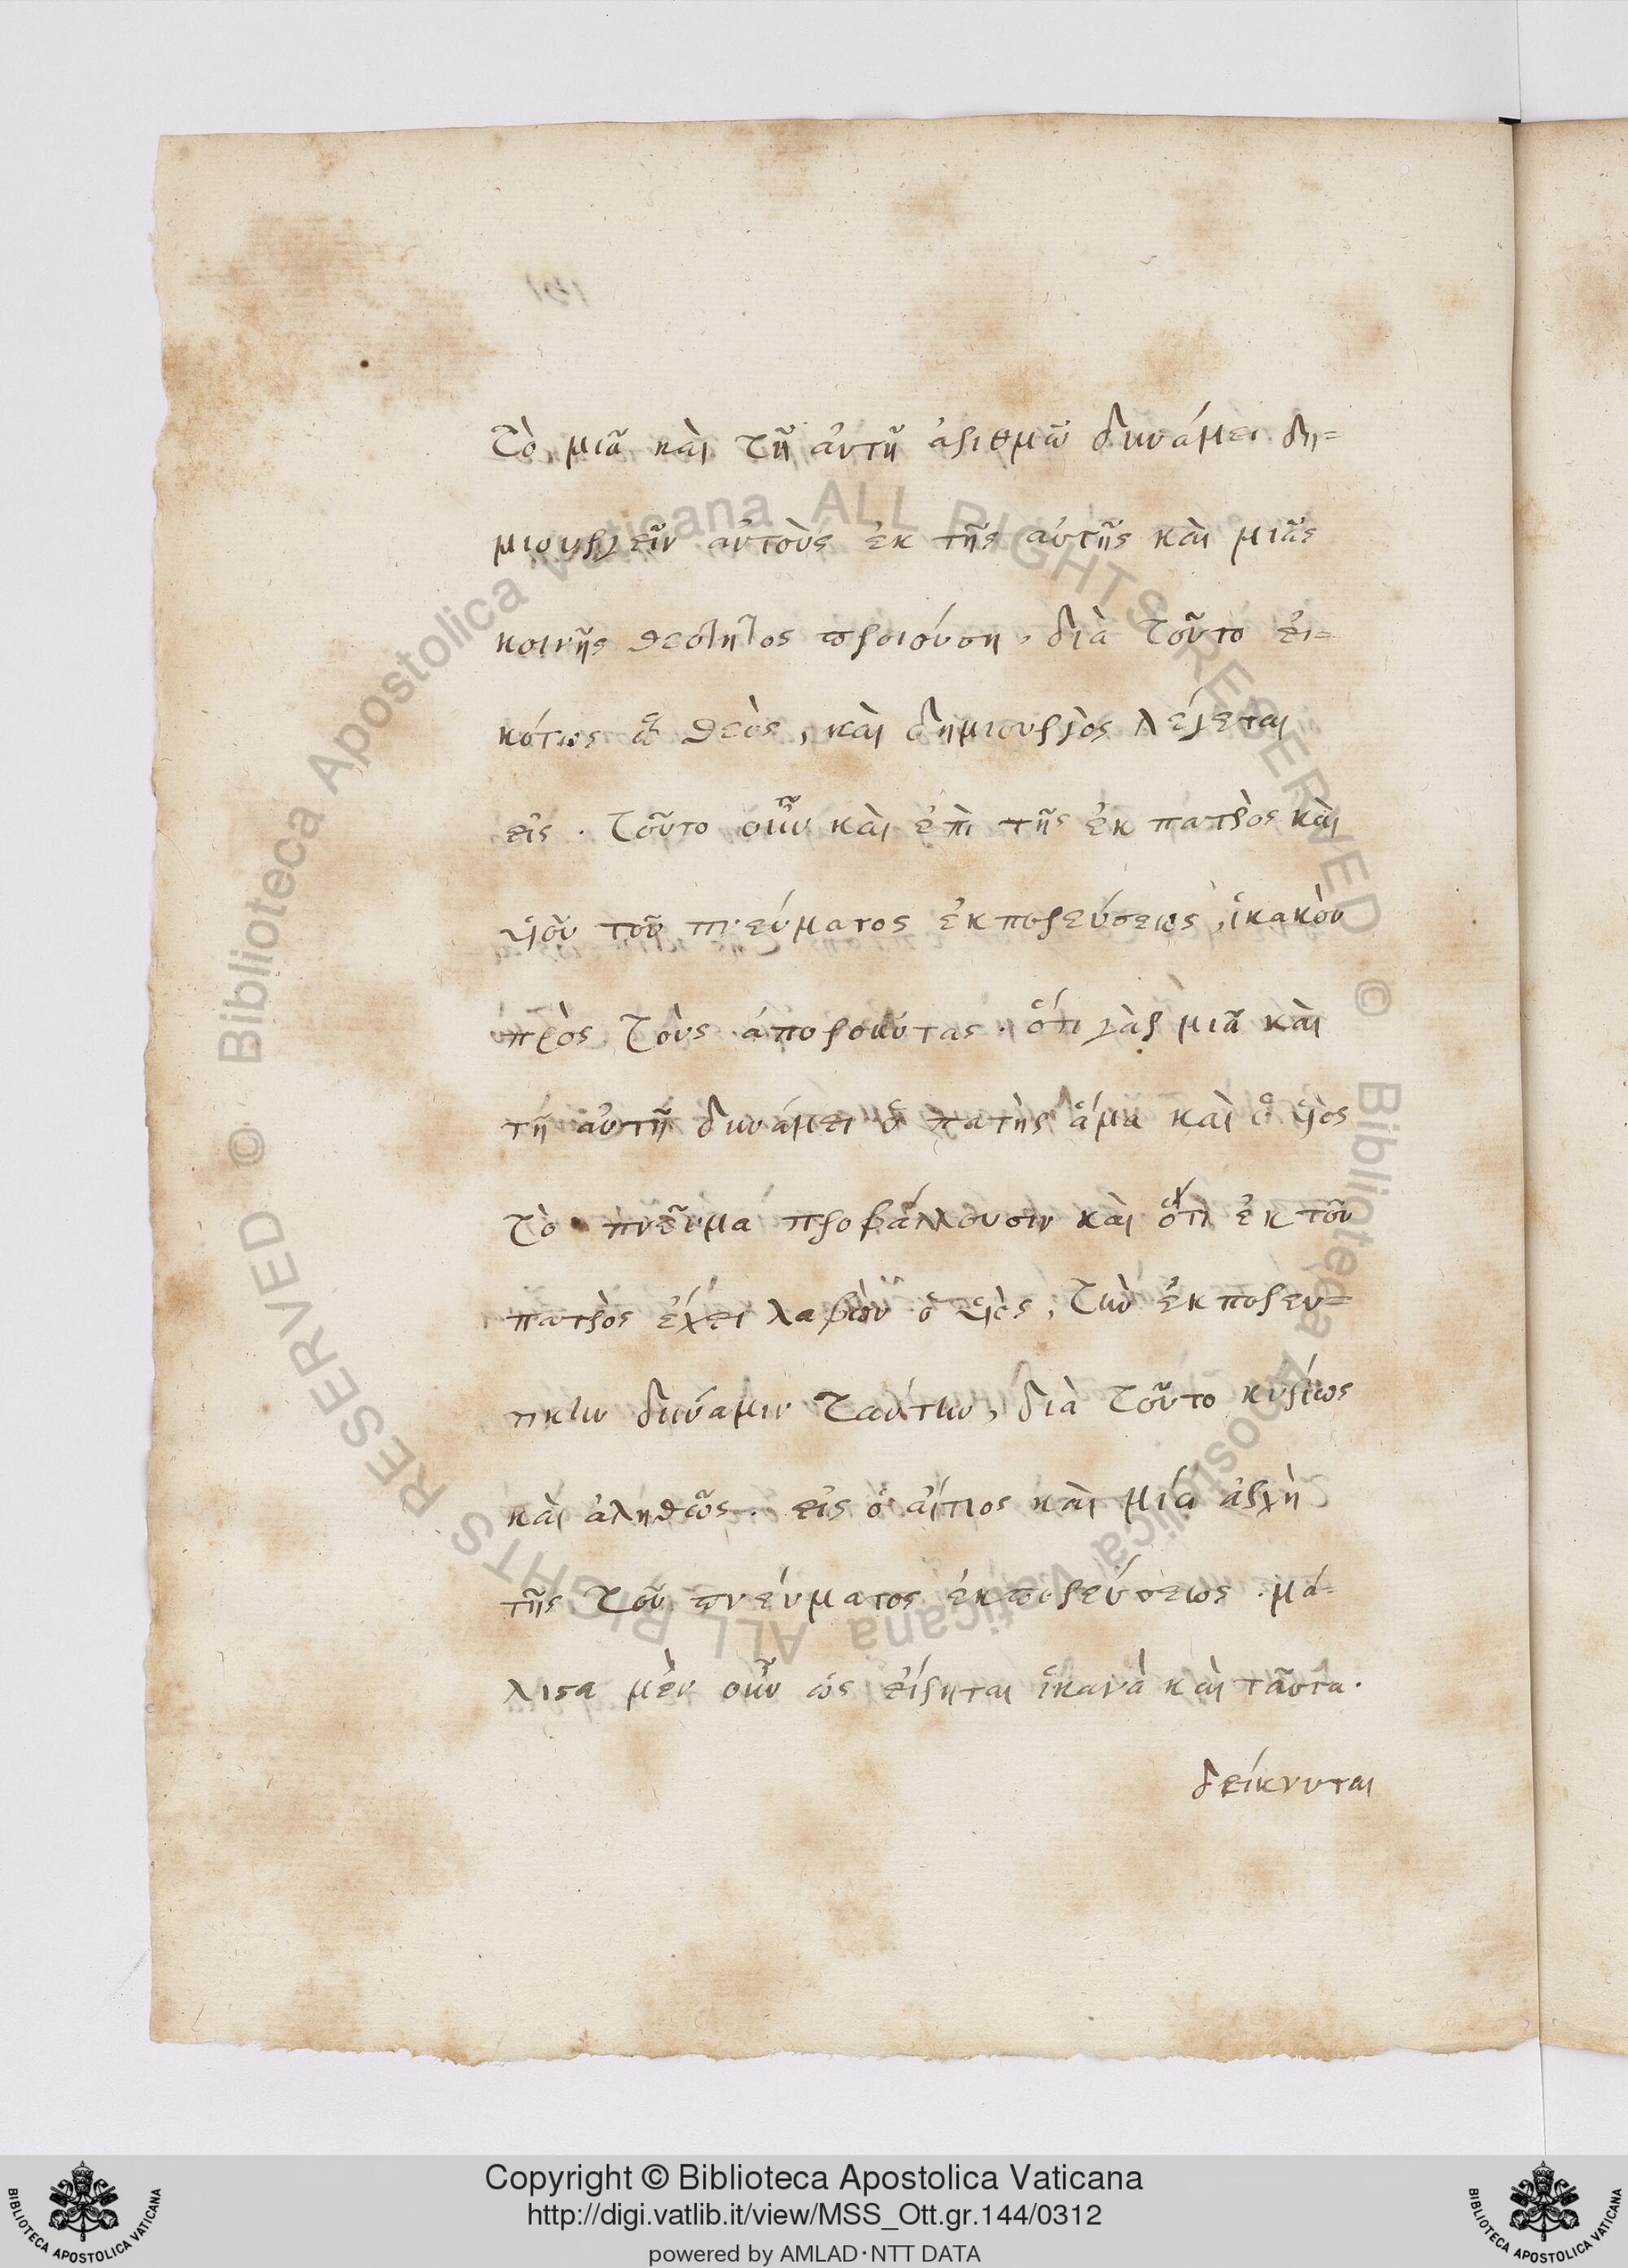 τὸ μιᾷ καὶ τῇ αὐτῇ ἀριθμῷ δυνάμει δη=
μιουργεῖν αὐτοὺς ἐκ τῆς αὐτῆς καὶ μιᾶς
κοινῆς θεότητος προιούσῃ, διὰ τοῦτο εἰ=
κότως ὁ θεὸς, καὶ δημιουργὸς λέγεται
εἷς. τοῦτο οὖν καὶ ἐπὶ τῆς ἐκ πατρὸς καὶ
υἱοῦ τοῦ πνεύματος ἐκπορεύσεως, ἱκανὸν
πρὸς τοὺς ἀποροῦντας. ὅτι γὰρ μιᾷ καὶ
τῇ αὐτῇ δυνάμει ὁ πατὴρ ἅμα καὶ ὁ υἱὸς
τὸ πνεῦμα προβάλλουσιν καὶ ὅτι ἐκ τοῦ
πατρὸς ἔχει λαβὼν ὁ υἱὸς, τὴν ἐκπορευ=
τικὴν δύναμιν ταύτην, διὰ τοῦτο κυρίως
καὶ ἀληθῶς. εἷς ὁ αἴτιος καὶ μία ἀρχὴ
τῆς τοῦ πνεύματος ἐκπορεύσεως. μά=
λιστα μὲν οὖν ὡς εἴρηται ἱκανὰ καὶ ταῦτα.
δείκνυται
Biblioteca Apostolica Vaticana ALL RIGHTS RESERVED ©
Biblioteca Apostolica Vaticana ALL RIGHTS RESERVED ©
Copyright © Biblioteca Apostolica Vaticana
http://digi.vatlib.it/view/MSS_Ott.gr.144/0312
powered by AMLAD·NTT DATA
BIBLIOTECA APOSTOLICA VATICANA
BIBLIOTECA APOSTOLICA VATICANA